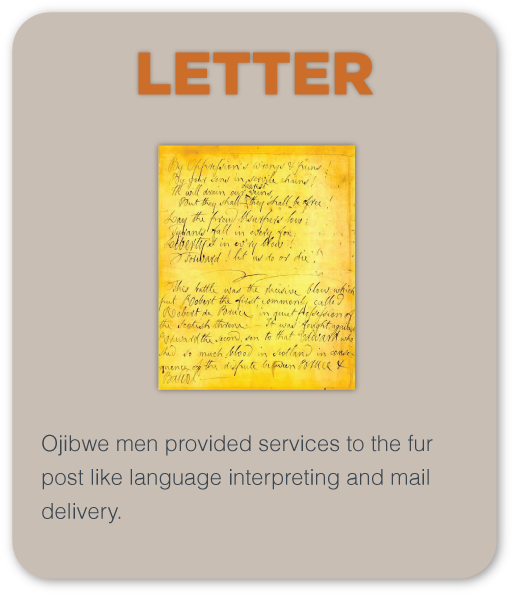 LETTER
By Oppression's woes & pains!
By your Sons in servile chains!
We will drain our dearest veins,
But they shall they shall be free!
Lay the proud Usurpers low!
Tyrants fall in every foe,
Liberty's in ev'ry blow!
Forward! let us do or die!
This battle was the decisive blow which
put Robert the first, commonly called
Robert de Bruce, in quiet possession of
the Scotish throne. It was fought against
Edward the second, son to that Edward who
shed so much blood in Scotland in conse-
quence of the dispute between Bruce &
Baliol
Ojibwe men provided services to the fur
post like language interpreting and mail
delivery.